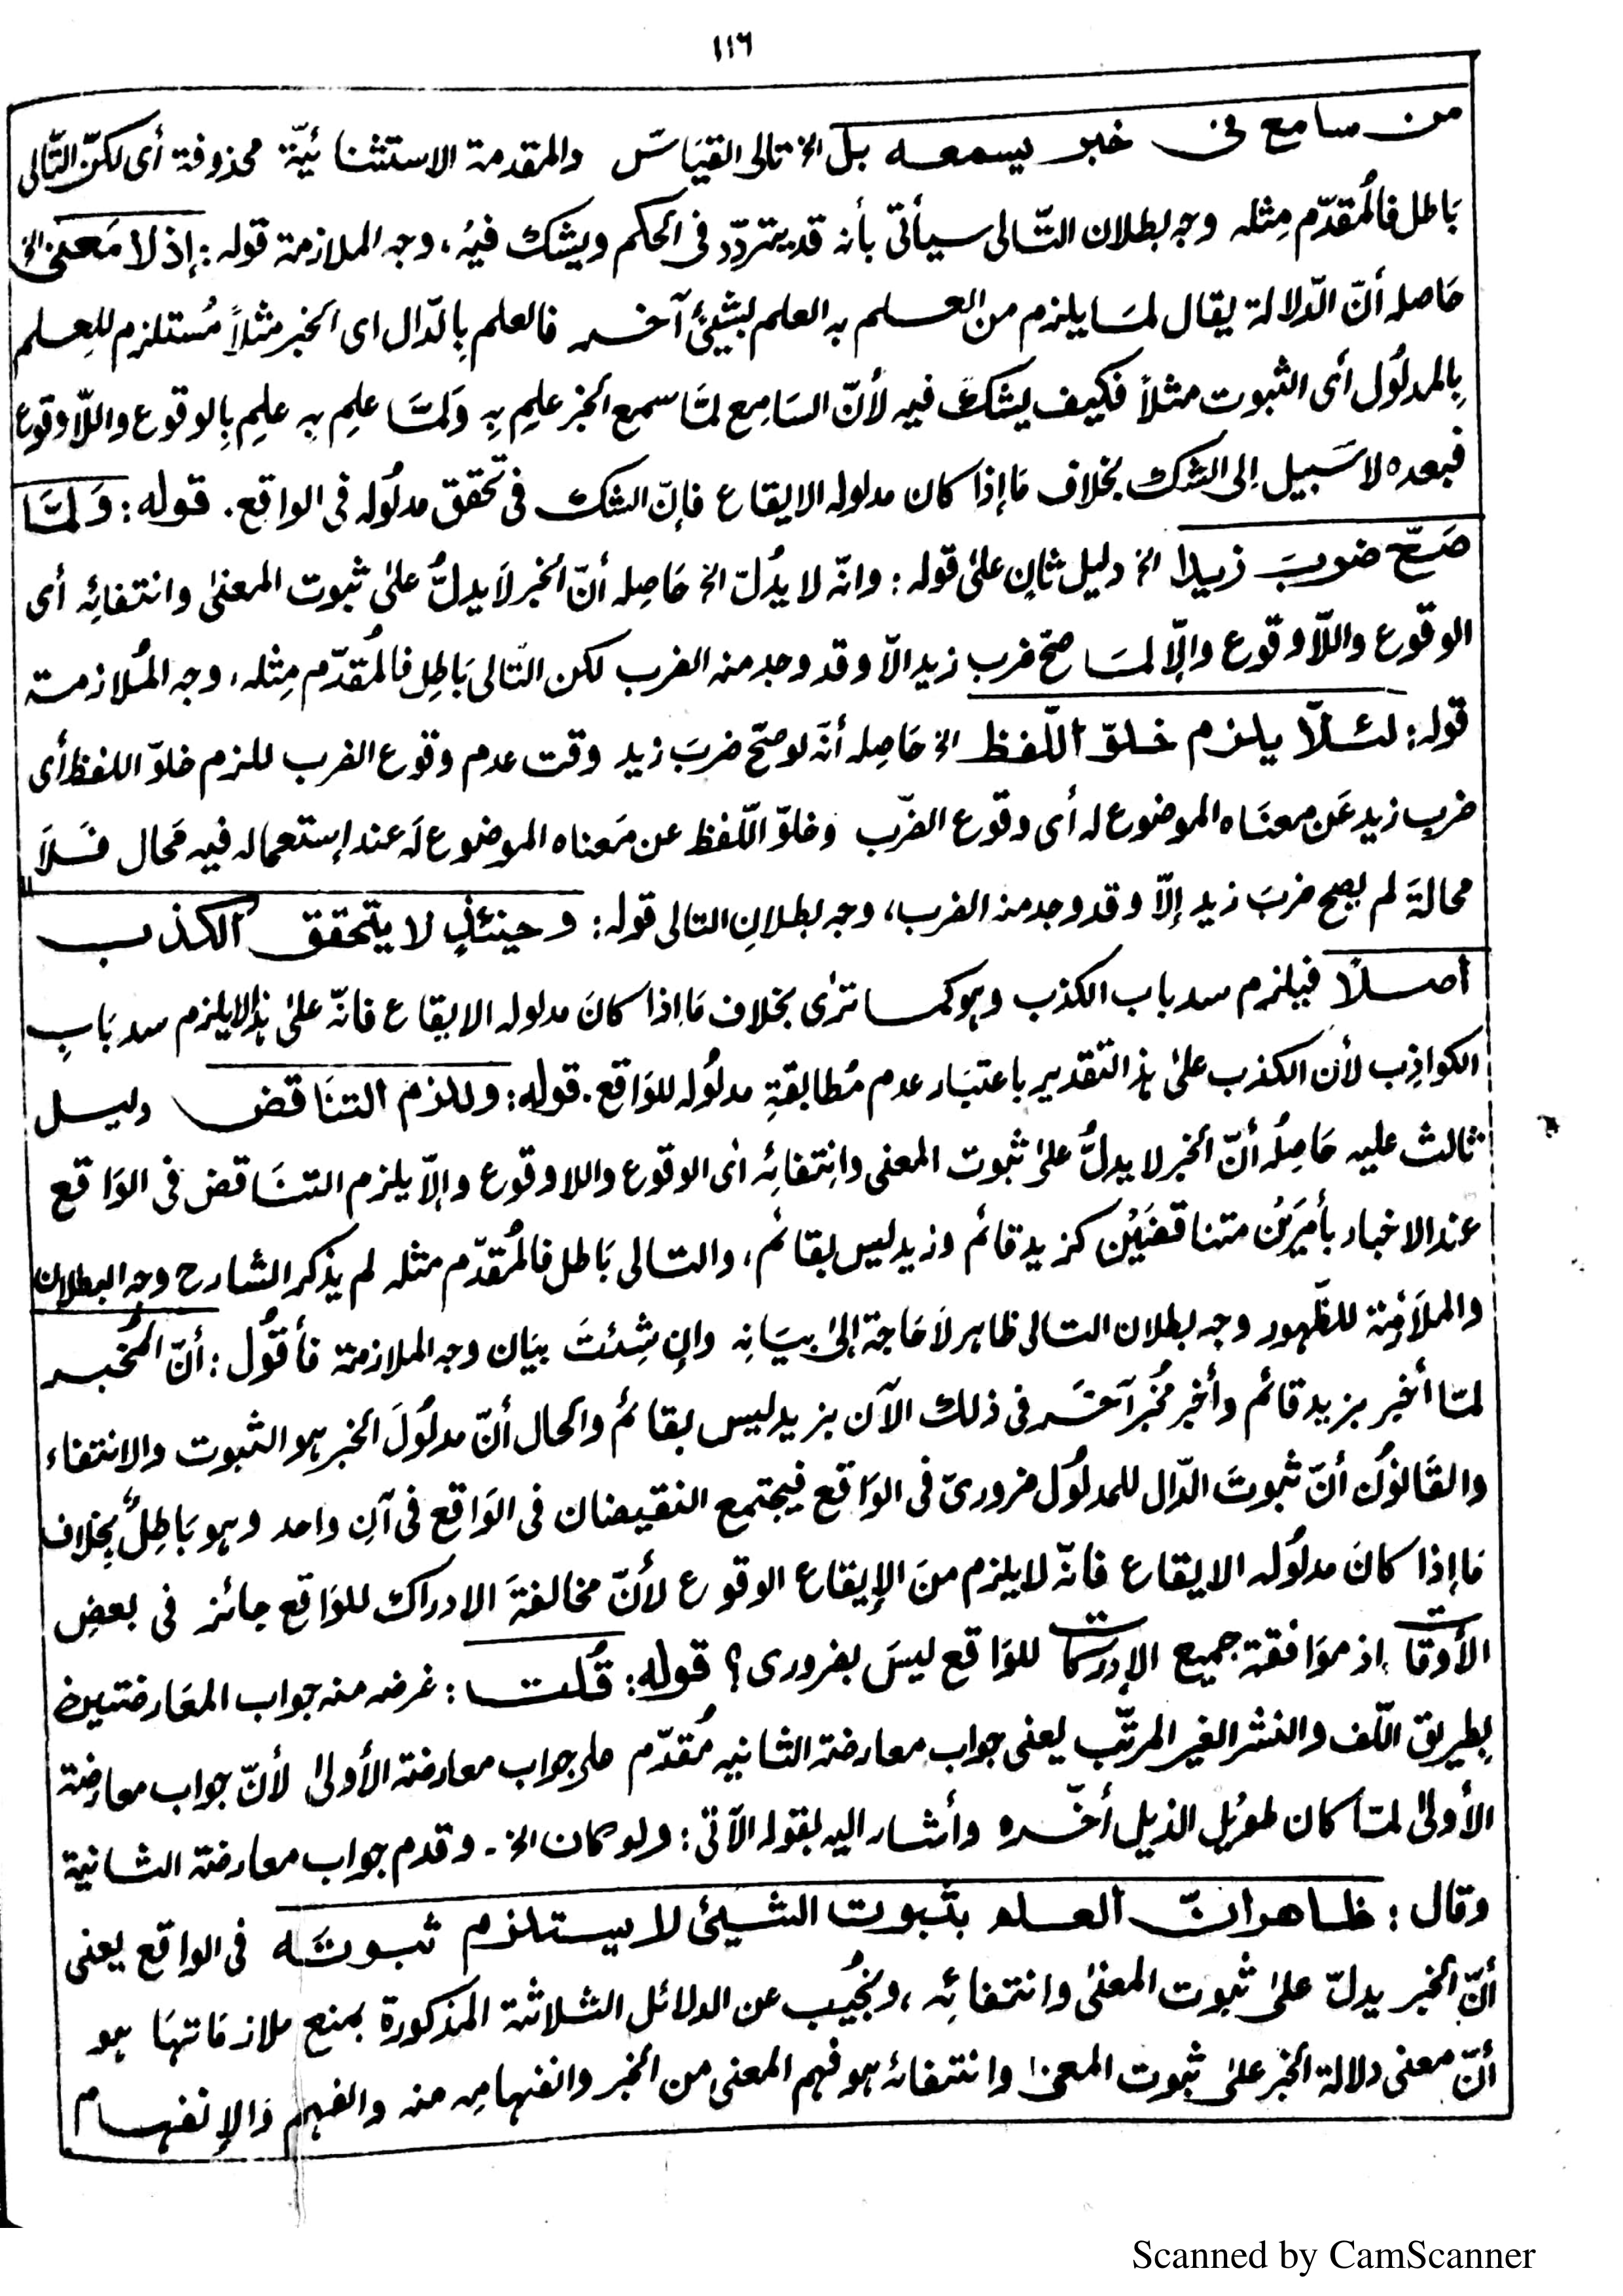 ١١٦
من سامع في خبر يسمعه بل الخ تالى القيَاسَ والمقدمة الاستثنائيّة محذوفة أى لكنّ التّالى
بَاطل فالمُقدّم مِثله وجه بطلان التّالى سيأتى بأنه قد يتردّد فى الحكم ويشك فيهُ، وجه الملازمة قوله: إذ لا مَعنى الخ
حَاصله أنّ الدّلالة يقال لمَا يلزم من العلم به العلم بشيئ آخر فالعلم بِالدّال اى الخبر مثلاً مُستلزم للعِلم
بِالمدلُول أى الثبوت مثلاً فكيف يشكّ فيه لأنّ السَامِع لمّا سمع الخبر علِم بِه وَلمّا علِم بِه علِم بِالوقوع واللّا وقوع
فبعده لا سَبيل إلى الشك بخلاف مَا إذا كان مدلوله الايقاع فإنّ الشك فى تحقق مدلُوله فى الواقع. قوله: وَلمّا
صَحّ ضربَ زيدا الخ دليل ثانٍ علىٰ قوله: وانّه لا يدُلّ الخ حَاصِله أنّ الخبر لَا يدلُّ علىٰ ثبوت المعنىٰ وانتفائِه أى
الوقوع واللّا وقوع وإلّا لمَا صحّ ضرب زيد الّا وقد وجد منه الضرب لكن التّالى بَاطِل فالمُقدّم مِثله، وجه المُلازمة
قوله: لئلّا يلزم خلوّ اللّفظ الخ حَاصِله أنّه لو صحّ ضربَ زيد وقت عدم وقوع الضرب للزم خلوّ اللفظ أى
ضرب زيد عَن معنَاه الموضوع له أى وقوع الضّرب وخلوّ اللّفظ عن مَعناه الموضوع لَه عند إستعماله فيه مَحال فَلَا
محالةَ لم يصح ضربَ زيد إلّا وقد وجد منه الضرب، وجه بطلانِ التالى قوله: وحينئذٍ لا يتحقق الكذب
أصلًا فيلزم سد باب الكذب وهو كما ترٰى بخلاف مَا اذا كانَ مدلوله الايقاع فانّه علىٰ هٰذا لا يلزم سد بَابِ
الكواذِب لأن الكذب علىٰ هٰذ التقدير باعتبَار عدم مُطابقةِ مدلُوله للوَاقع. قوله: وللزم التنَاقض دليل
ثالث عليه حَاصِلُه أنّ الخبر لا يدلُّ علىٰ ثبوت المعنى وانِتفائِه اى الوقوع واللا وقوع وإلّا يلزم التنَاقض فى الوَاقع
عند الاخبار بأمرَين متناقضَيْن كزيد قائم وزيد ليس بقائم، والتالى بَاطل فالمُقدّم مثله لم يذكر الشارح وجه البطلان
والملَازمة للظّهور وجه بطلان التالى ظاهر لَا حَاجة إلىٰ بيَانِه وإن شِئتَ بيَان وجه الملازمة فأقُول: أنّ المُخبر
لمّا أخبر بزيد قائم وأخبر مُخبر آخَر فى ذلك الآن بزيد ليس بقائم والحال أنّ مدلُولَ الخبر هو الثبوت والانتفاء
والقَانوُن أنّ ثبوتَ الدّال للمدلُول ضرورىّ فى الوَاقع فيجتمع النقيضان فى الوَاقع فى آنٍ واحد وهو بَاطِلٌ بِخلاف
مَا إذا كانَ مدلُوله الايقاع فانّه لا يلزم منَ الإيقاع الوقوع لأنّ مخالفةَ الادراك للوَاقع جائز فى بعضِ
الأوقات إذ موَافقة جميع الإدركات للوَاقع ليسَ بضرورى؟ قوله: قُلت: غرضه منه جواب المعَارضتين
بِطريق اللّف والنشر الغير المرتّب يعنى جواب معارضة الثانيه مُقدّم على جواب معارضة الأولىٰ لأنّ جواب معارضة
الأولىٰ لمّا كان طويُل الذيل أخّره وأشار اليه بقوله الآتى: ولو كان الخ - وقدم جواب معارضة الثانية
وقال: ظاهر انّ العلم بثبوت الشيئ لا يستلزم ثبوتَه فى الواقع يعنى
أنّ الخبر يدلّ علىٰ ثبوت المعنىٰ وانتفائِه، ويجُيب عن الدلائل الثلاثة المذكورة بمنع ملازمَاتهَا هو
أنّ معنى دلالة الخبر علىٰ ثبوت المعنىٰ وانتفائه هو فهم المعنى من الخبر وانفهامِه منه والفهم وَالإنفهام
Scanned by CamScanner